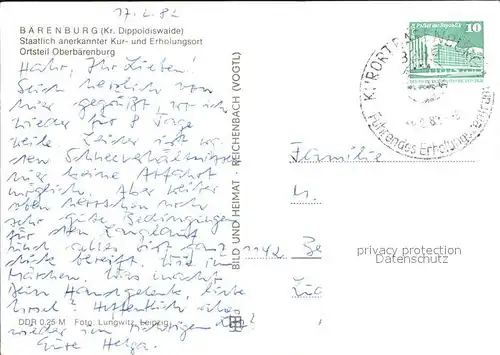 17.2.82
BÄRENBURG (Kr. Dippoldiswalde)
Staatlich anerkannter Kur- und Erholungsort
Ortsteil Oberbärenburg
Ihr Lieben!
Seid herzlich von
hier gegrüßt, wo ich
wieder für 8 Tage
weile. Leider ist
den Schneeverhältnissen
hier keine Abfahrt
möglich. Aber weiter
oben herrschen noch
sehr gute Bedingungen
für den Langlauf
und alles ist ganz
dick bereift. Wie im
Märchen. Was macht
Dein Handgelenk, liebe
Hoffentlich alles
wieder im richtigen
Eure Helga.
DDR 0,25 M Foto: Lungwitz, Leipzig
BILD UND HEIMAT · REICHENBACH (VOGTL)
10
KURORT
Führendes Erholungszentrum
Familie
1142 Be
privacy protection
Datenschutz